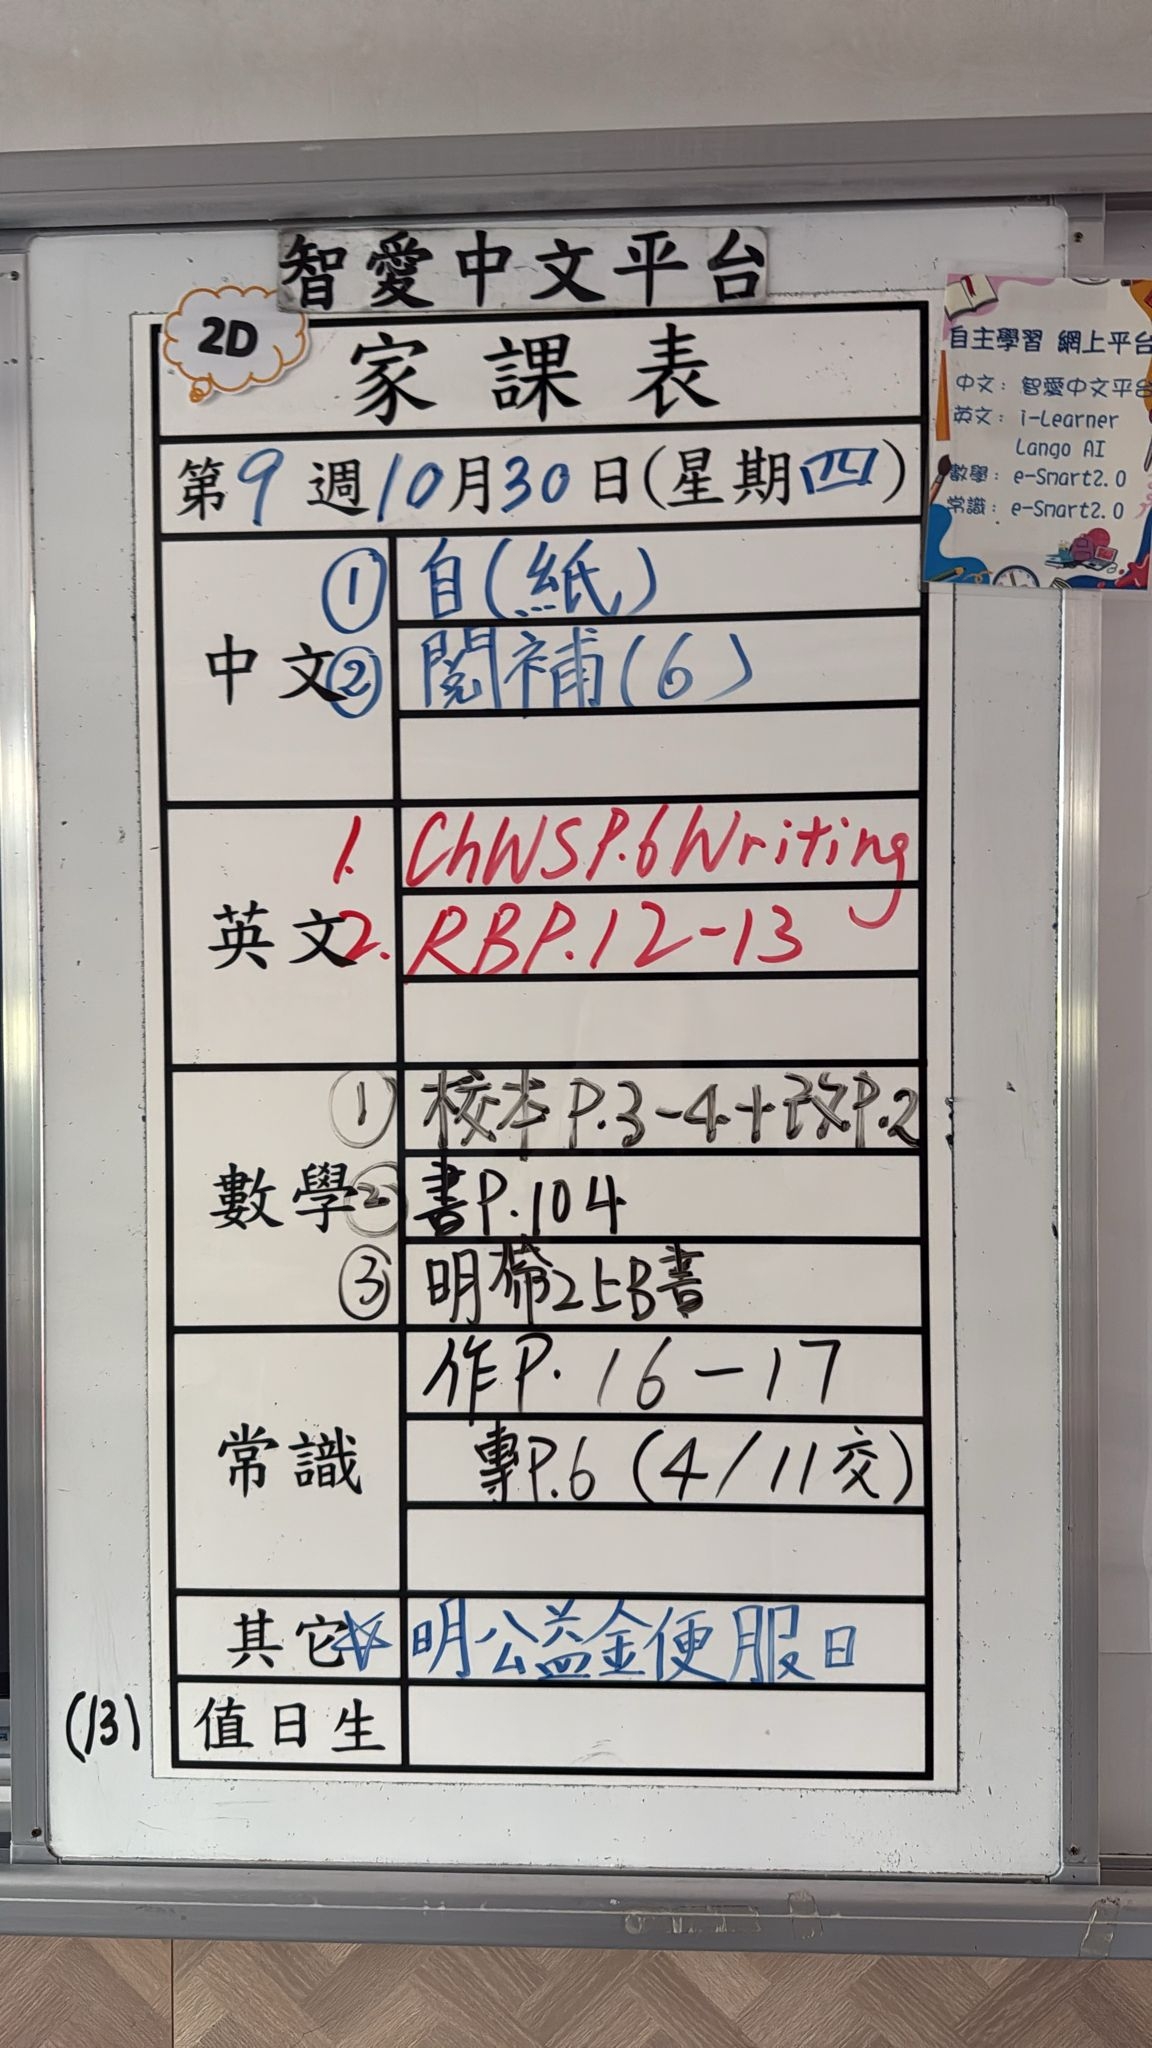 智愛中文平台
2D
家課表
第9週10月30日(星期四)
中文
① 自(紙)
② 閱補(6)
英文
1. ChWS P.6 Writing
2. RB P.12-13
數學
① 校本P.3-4+改P.2
② 書P.104
③ 明帶2上B書
常識
作P.16-17
專P.6 (4/11交)
其它
☆ 明公益金便服日
(13)
值日生
自主學習 網上平台
中文: 智愛中文平台
英文: i-Learner
Lango AI
數學: e-Smart2.0
常識: e-Smart2.0